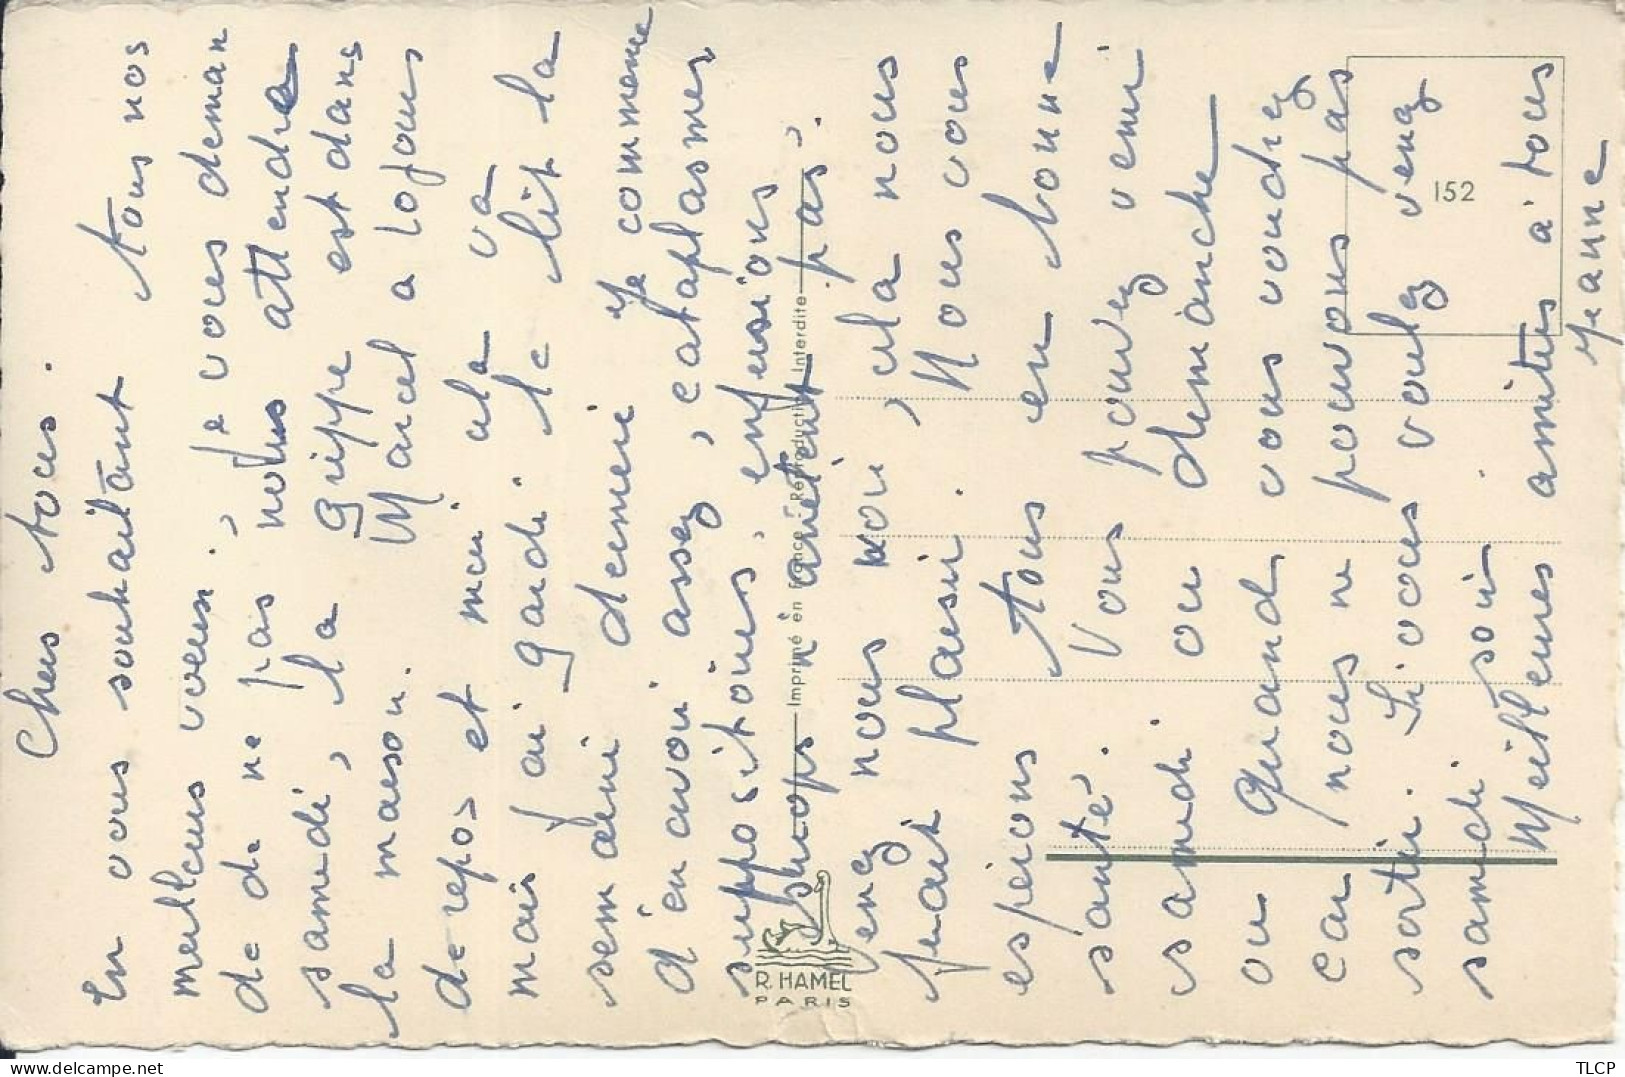 Chers tous.
En vous souhaitant tous nos
meilleurs voeux, je vous deman
de de ne pas nous attendre
samedi, la grippe est dans
la maison. Marcel a 10 jours
de repos et moi cela va
mais j'ai gardé le lit la
semaine dernière je commence
d'en avoir assez, cataplasmes
suppositoires, enfusions
sirops n'arrêtent pas.
Venez nous voir, cela nous
ferait plaisir. Nous vous
espérons tous en bonne
santé. Vous pouvez venir
samedi ou dimanche
ou quand vous voudrez
car nous ne pouvons pas
sortir. Si vous voulez venez
samedi soir.
Meilleures amitiés à tous
Jeanne
Imprimé en France - Reproduction Interdite
R. HAMEL
PARIS
152
TLCP